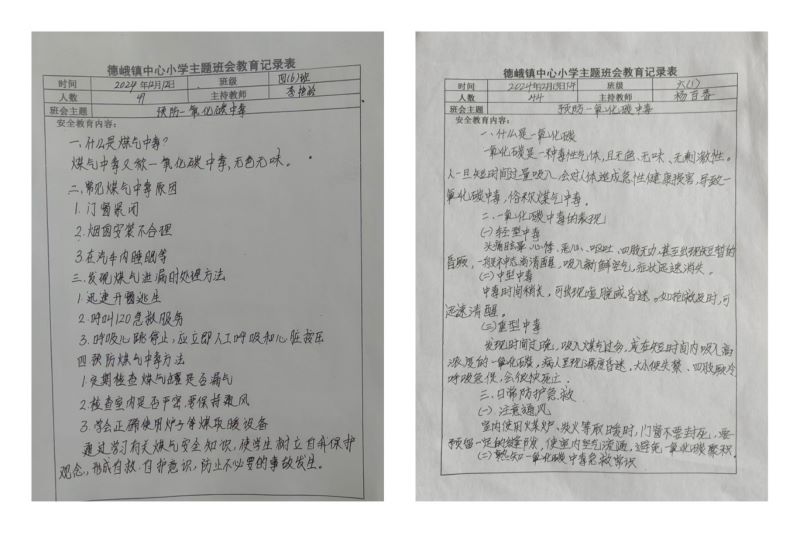 德峨镇中心小学主题班会教育记录表
时间 2024年12月12日 班级 四(6)班
人数 47 主持教师 李艳
班会主题 预防一氧化碳中毒
安全教育内容:
一.什么是煤气中毒?
煤气中毒又称一氧化碳中毒,无色无味。
二.常见煤气中毒原因
1.门窗紧闭
2.烟囱安装不合理
3.在汽车内睡眠等
三.发现煤气泄漏时处理方法
1.迅速开窗逃生
2.呼叫120急救服务
3.呼吸心跳停止,应立即人工呼吸和心脏按压
四.预防煤气中毒方法
1.定期检查煤气罐是否漏气
2.检查室内是否严密,要保持通风
3.学会正确使用炉子等煤取暖设备
通过学习有关煤气安全知识,使学生树立自我保护
观念,形成自救、自护意识,防止不必要的事故发生。
德峨镇中心小学主题班会教育记录表
时间 2024年12月13日 班级 六(1)
人数 44 主持教师 杨百香
班会主题 预防一氧化碳中毒
安全教育内容:
一、什么是一氧化碳
一氧化碳是一种毒性气体,且无色、无味、无刺激性。
人一旦短时间过量吸入,会对人体造成急性健康损害,导致一
氧化碳中毒,俗称煤气中毒。
二、一氧化碳中毒的表现
(一)轻型中毒
头痛眩晕、心悸、恶心、呕吐、四肢无力,甚至出现短暂的
昏厥,一般神志尚清醒,吸入新鲜空气,症状迅速消失。
(二)中型中毒
中毒时间稍长,可出现虚脱或昏迷。如抢救及时,可
迅速清醒。
(三)重型中毒
发现时间过晚,吸入煤气过多,或在短时间内吸入高
浓度的一氧化碳,病人呈现深度昏迷,大小便失禁、四肢厥冷
呼吸急促,会很快死亡。
三、日常防护急救
(一)注意通风
室内使用煤炉、炭火等取暖时,门窗不要封死,要
预留一定的缝隙,使室内空气流通,避免一氧化碳聚积。
(二)熟知一氧化碳中毒急救常识